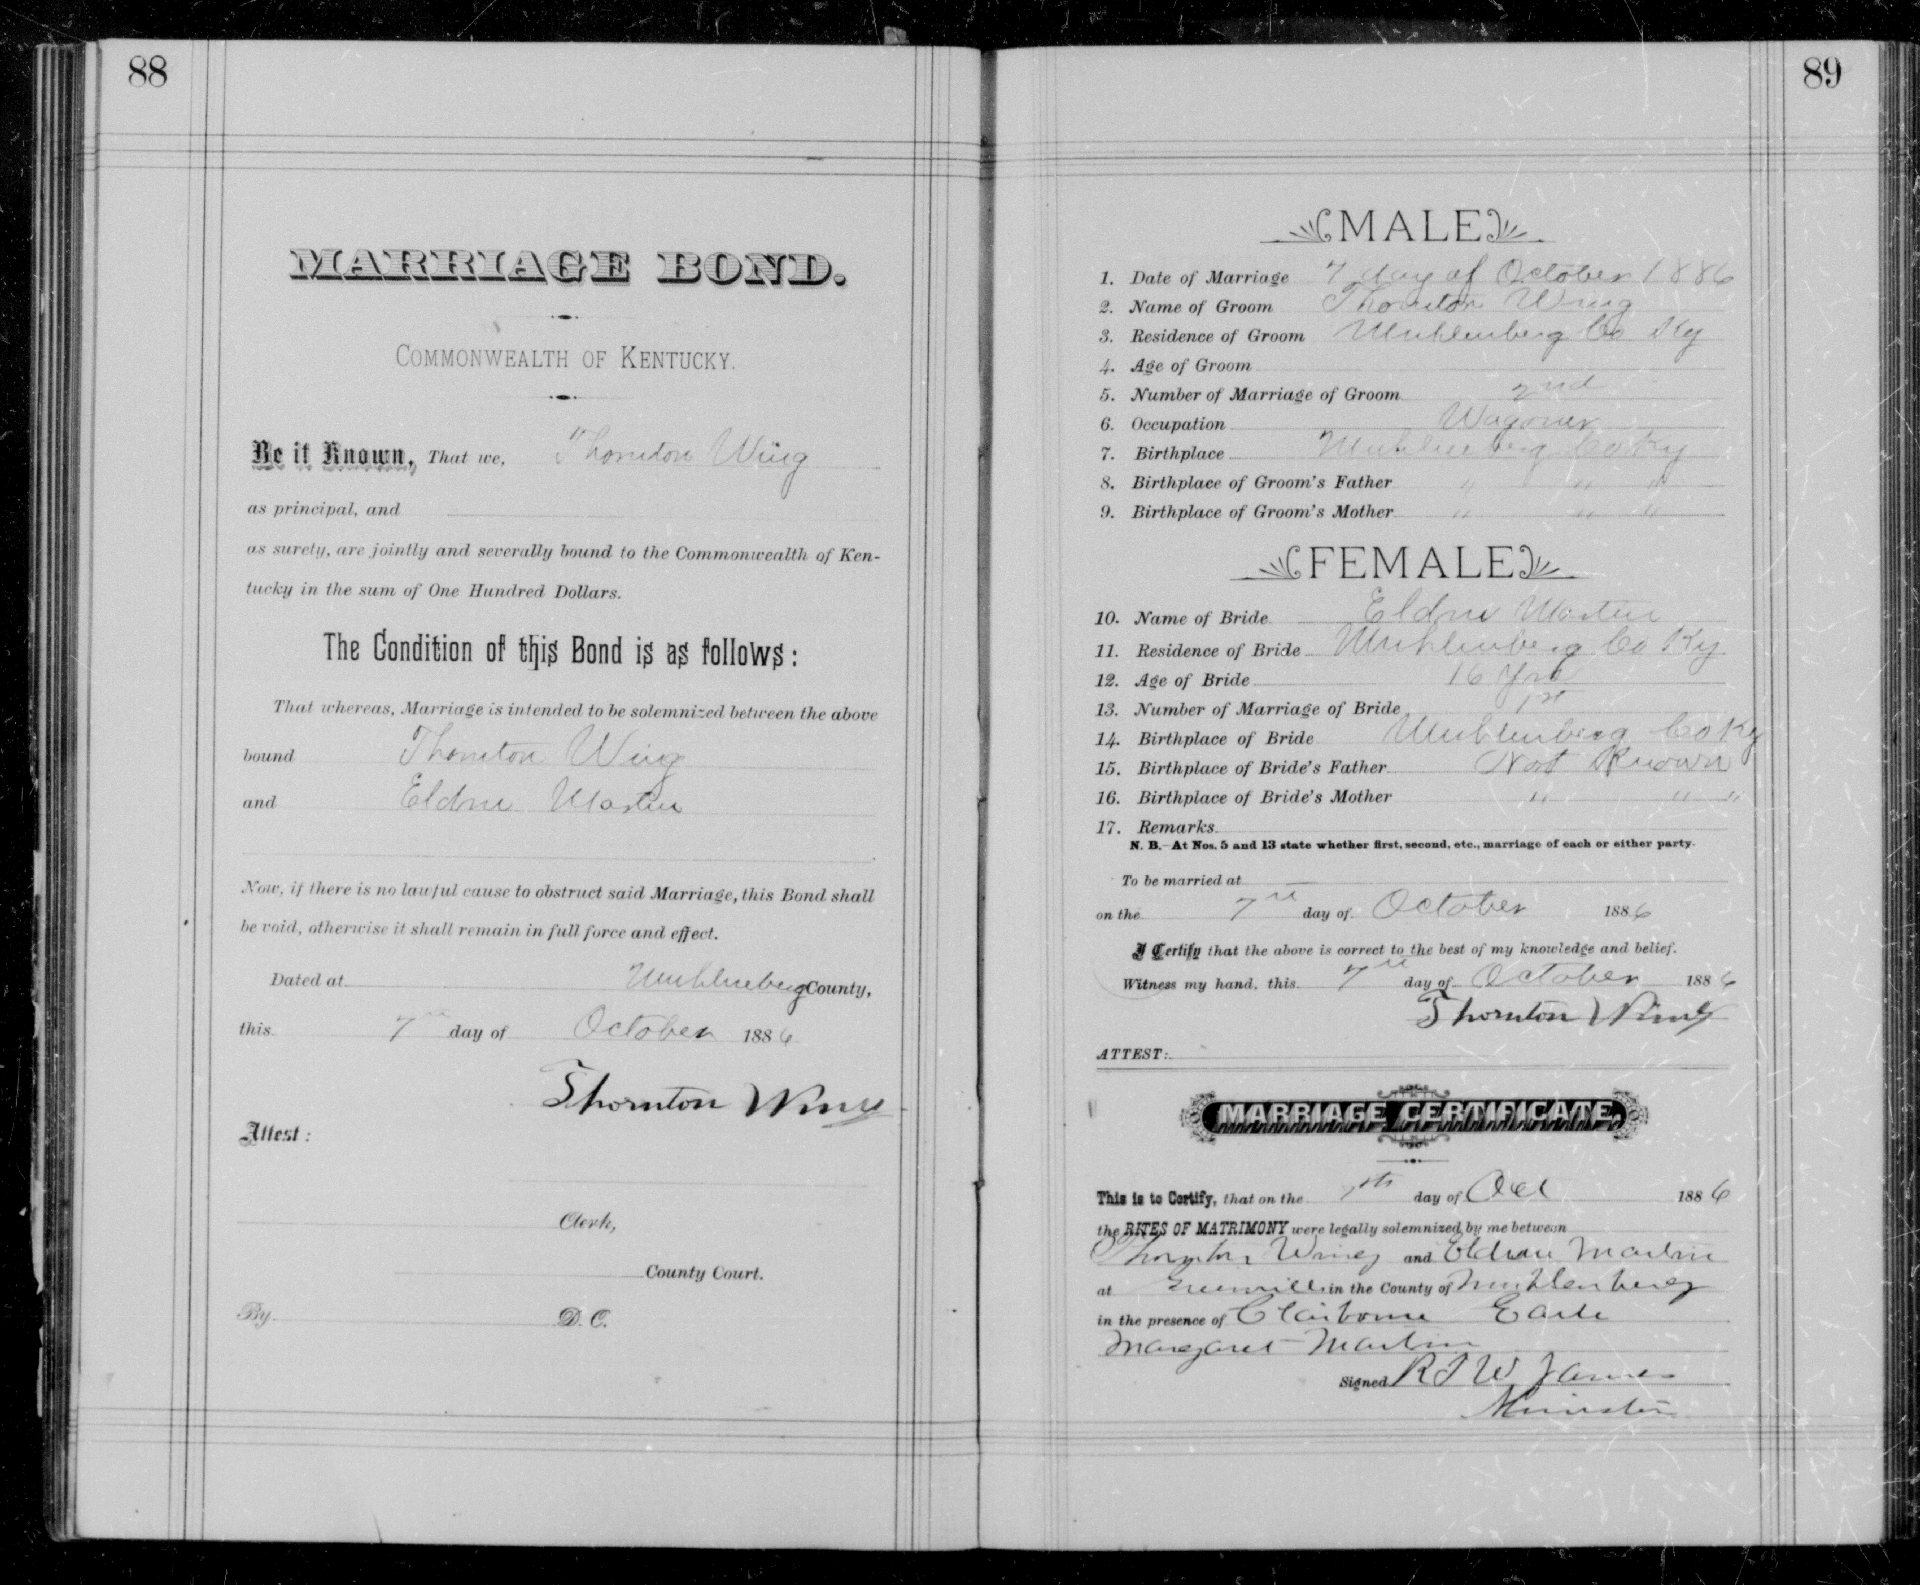 88
MARRIAGE BOND.
COMMONWEALTH OF KENTUCKY.
Be it Known, That we, Thornton Wing
as principal, and
as surety, are jointly and severally bound to the Commonwealth of Ken-
tucky in the sum of One Hundred Dollars.
The Condition of this Bond is as follows:
That whereas, Marriage is intended to be solemnized between the above
bound Thornton Wing
and Martin
Now, if there is no lawful cause to obstruct said Marriage, this Bond shall
be void, otherwise it shall remain in full force and effect.
Dated at Muhlenberg County,
this 7 day of October 1886
Thornton Wing
Attest:
Clerk,
County Court.
By D. C.
89
MALE
1. Date of Marriage 7 day of October 1886
2. Name of Groom Thornton Wing
3. Residence of Groom Muhlenberg Co Ky
4. Age of Groom
5. Number of Marriage of Groom 2nd
6. Occupation Wagoner
7. Birthplace Muhlenberg Co Ky
8. Birthplace of Groom's Father " " "
9. Birthplace of Groom's Mother " " "
FEMALE
10. Name of Bride Martin
11. Residence of Bride Muhlenberg Co Ky
12. Age of Bride 16 Yrs
13. Number of Marriage of Bride 1st
14. Birthplace of Bride Muhlenberg Co Ky
15. Birthplace of Bride's Father Not Known
16. Birthplace of Bride's Mother " " "
17. Remarks
N. B.—At Nos. 5 and 13 state whether first, second, etc., marriage of each or either party.
To be married at
on the 7th day of October 1886
I Certify that the above is correct to the best of my knowledge and belief.
Witness my hand, this 7th day of October 1886
Thornton Wing
ATTEST:
MARRIAGE CERTIFICATE.
This is to Certify, that on the 7th day of Oct 1886
the RITES OF MATRIMONY were legally solemnized by me between
Thornton Wing and Martin
at Greenville in the County of Muhlenberg
in the presence of Claiborne
Margaret Martin
Signed James
Minister